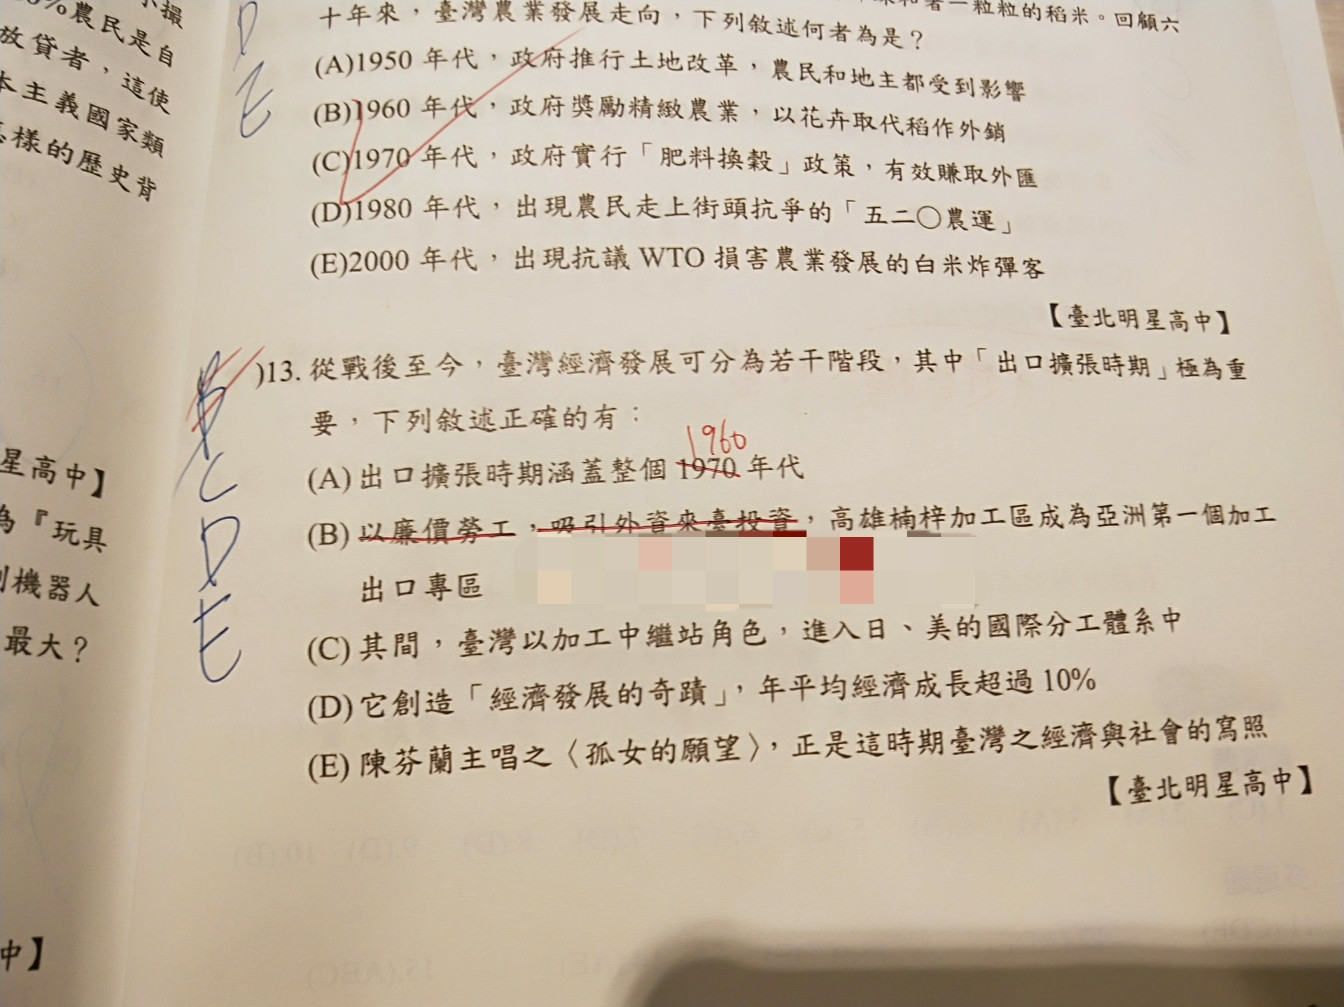 小撮
%農民是自
放貸者，這使
本主義國家類
樣的歷史背
星高中】
為『玩具
機器人
最大？
中】
D
E
一粒粒的稻米。回顧六
十年來，臺灣農業發展走向，下列敘述何者為是？
(A)1950 年代，政府推行土地改革，農民和地主都受到影響
(B)1960 年代，政府獎勵精緻農業，以花卉取代稻作外銷
(C)1970 年代，政府實行「肥料換穀」政策，有效賺取外匯
(D)1980 年代，出現農民走上街頭抗爭的「五二〇農運」
(E)2000 年代，出現抗議 WTO 損害農業發展的白米炸彈客
【臺北明星高中】
)13. 從戰後至今，臺灣經濟發展可分為若干階段，其中「出口擴張時期」極為重
要，下列敘述正確的有：
1960
(A) 出口擴張時期涵蓋整個 1970 年代
(B) 以廉價勞工，吸引外資來臺投資，高雄楠梓加工區成為亞洲第一個加工
出口專區
(C) 其間，臺灣以加工中繼站角色，進入日、美的國際分工體系中
(D) 它創造「經濟發展的奇蹟」，年平均經濟成長超過 10%
(E) 陳芬蘭主唱之〈孤女的願望〉，正是這時期臺灣之經濟與社會的寫照
【臺北明星高中】
C
D
E